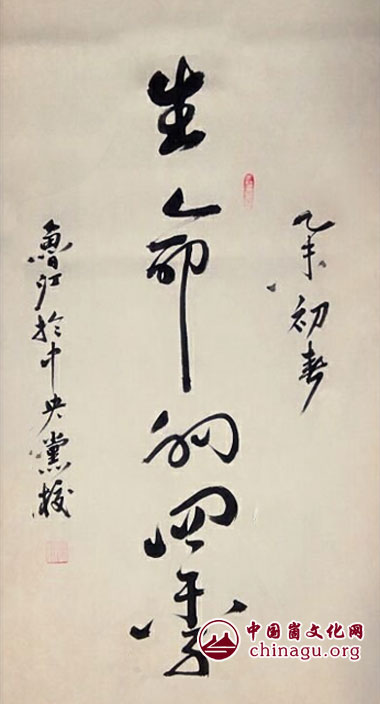 乙未初春
生命的四季
魯江於中央黨校
中国崮文化网
chinagu.org